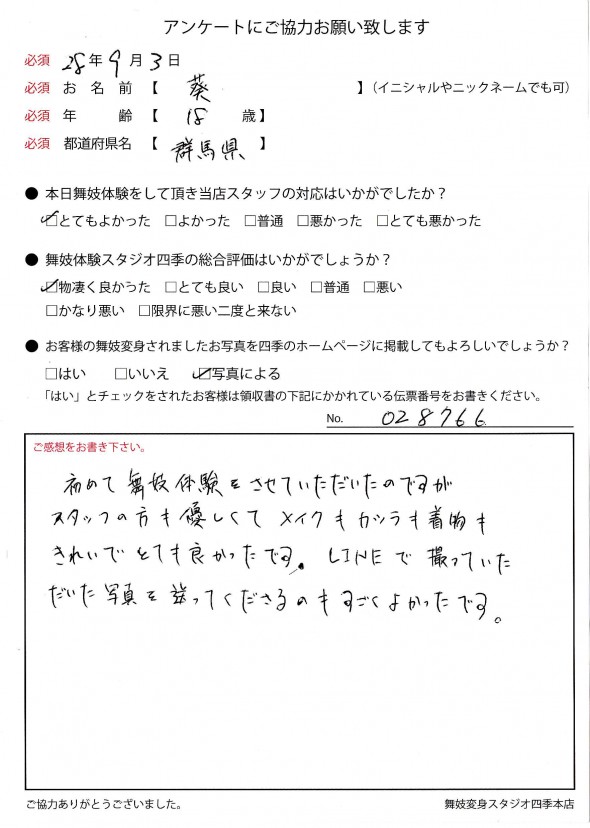 アンケートにご協力お願い致します
必須 28年9月3日
必須 お名前【 葵 】(イニシャルやニックネームでも可)
必須 年齢【 18 歳】
必須 都道府県名【 群馬県 】
● 本日舞妓体験をして頂き当店スタッフの対応はいかがでしたか?
☑とてもよかった □よかった □普通 □悪かった □とても悪かった
● 舞妓体験スタジオ四季の総合評価はいかがでしょうか?
☑物凄く良かった □とても良い □良い □普通 □悪い
□かなり悪い □限界に悪い二度と来ない
● お客様の舞妓変身されましたお写真を四季のホームページに掲載してもよろしいでしょうか?
□はい □いいえ ☑写真による
「はい」とチェックをされたお客様は領収書の下記にかかれている伝票番号をお書きください。
No. 028766
ご感想をお書き下さい。
初めて舞妓体験をさせていただいたのですが
スタッフの方も優しくてメイクもカツラも着物も
きれいでとても良かったです。LINEで撮っていた
だいた写真を送ってくださるのもすごくよかったです。
ご協力ありがとうございました。
舞妓変身スタジオ四季本店